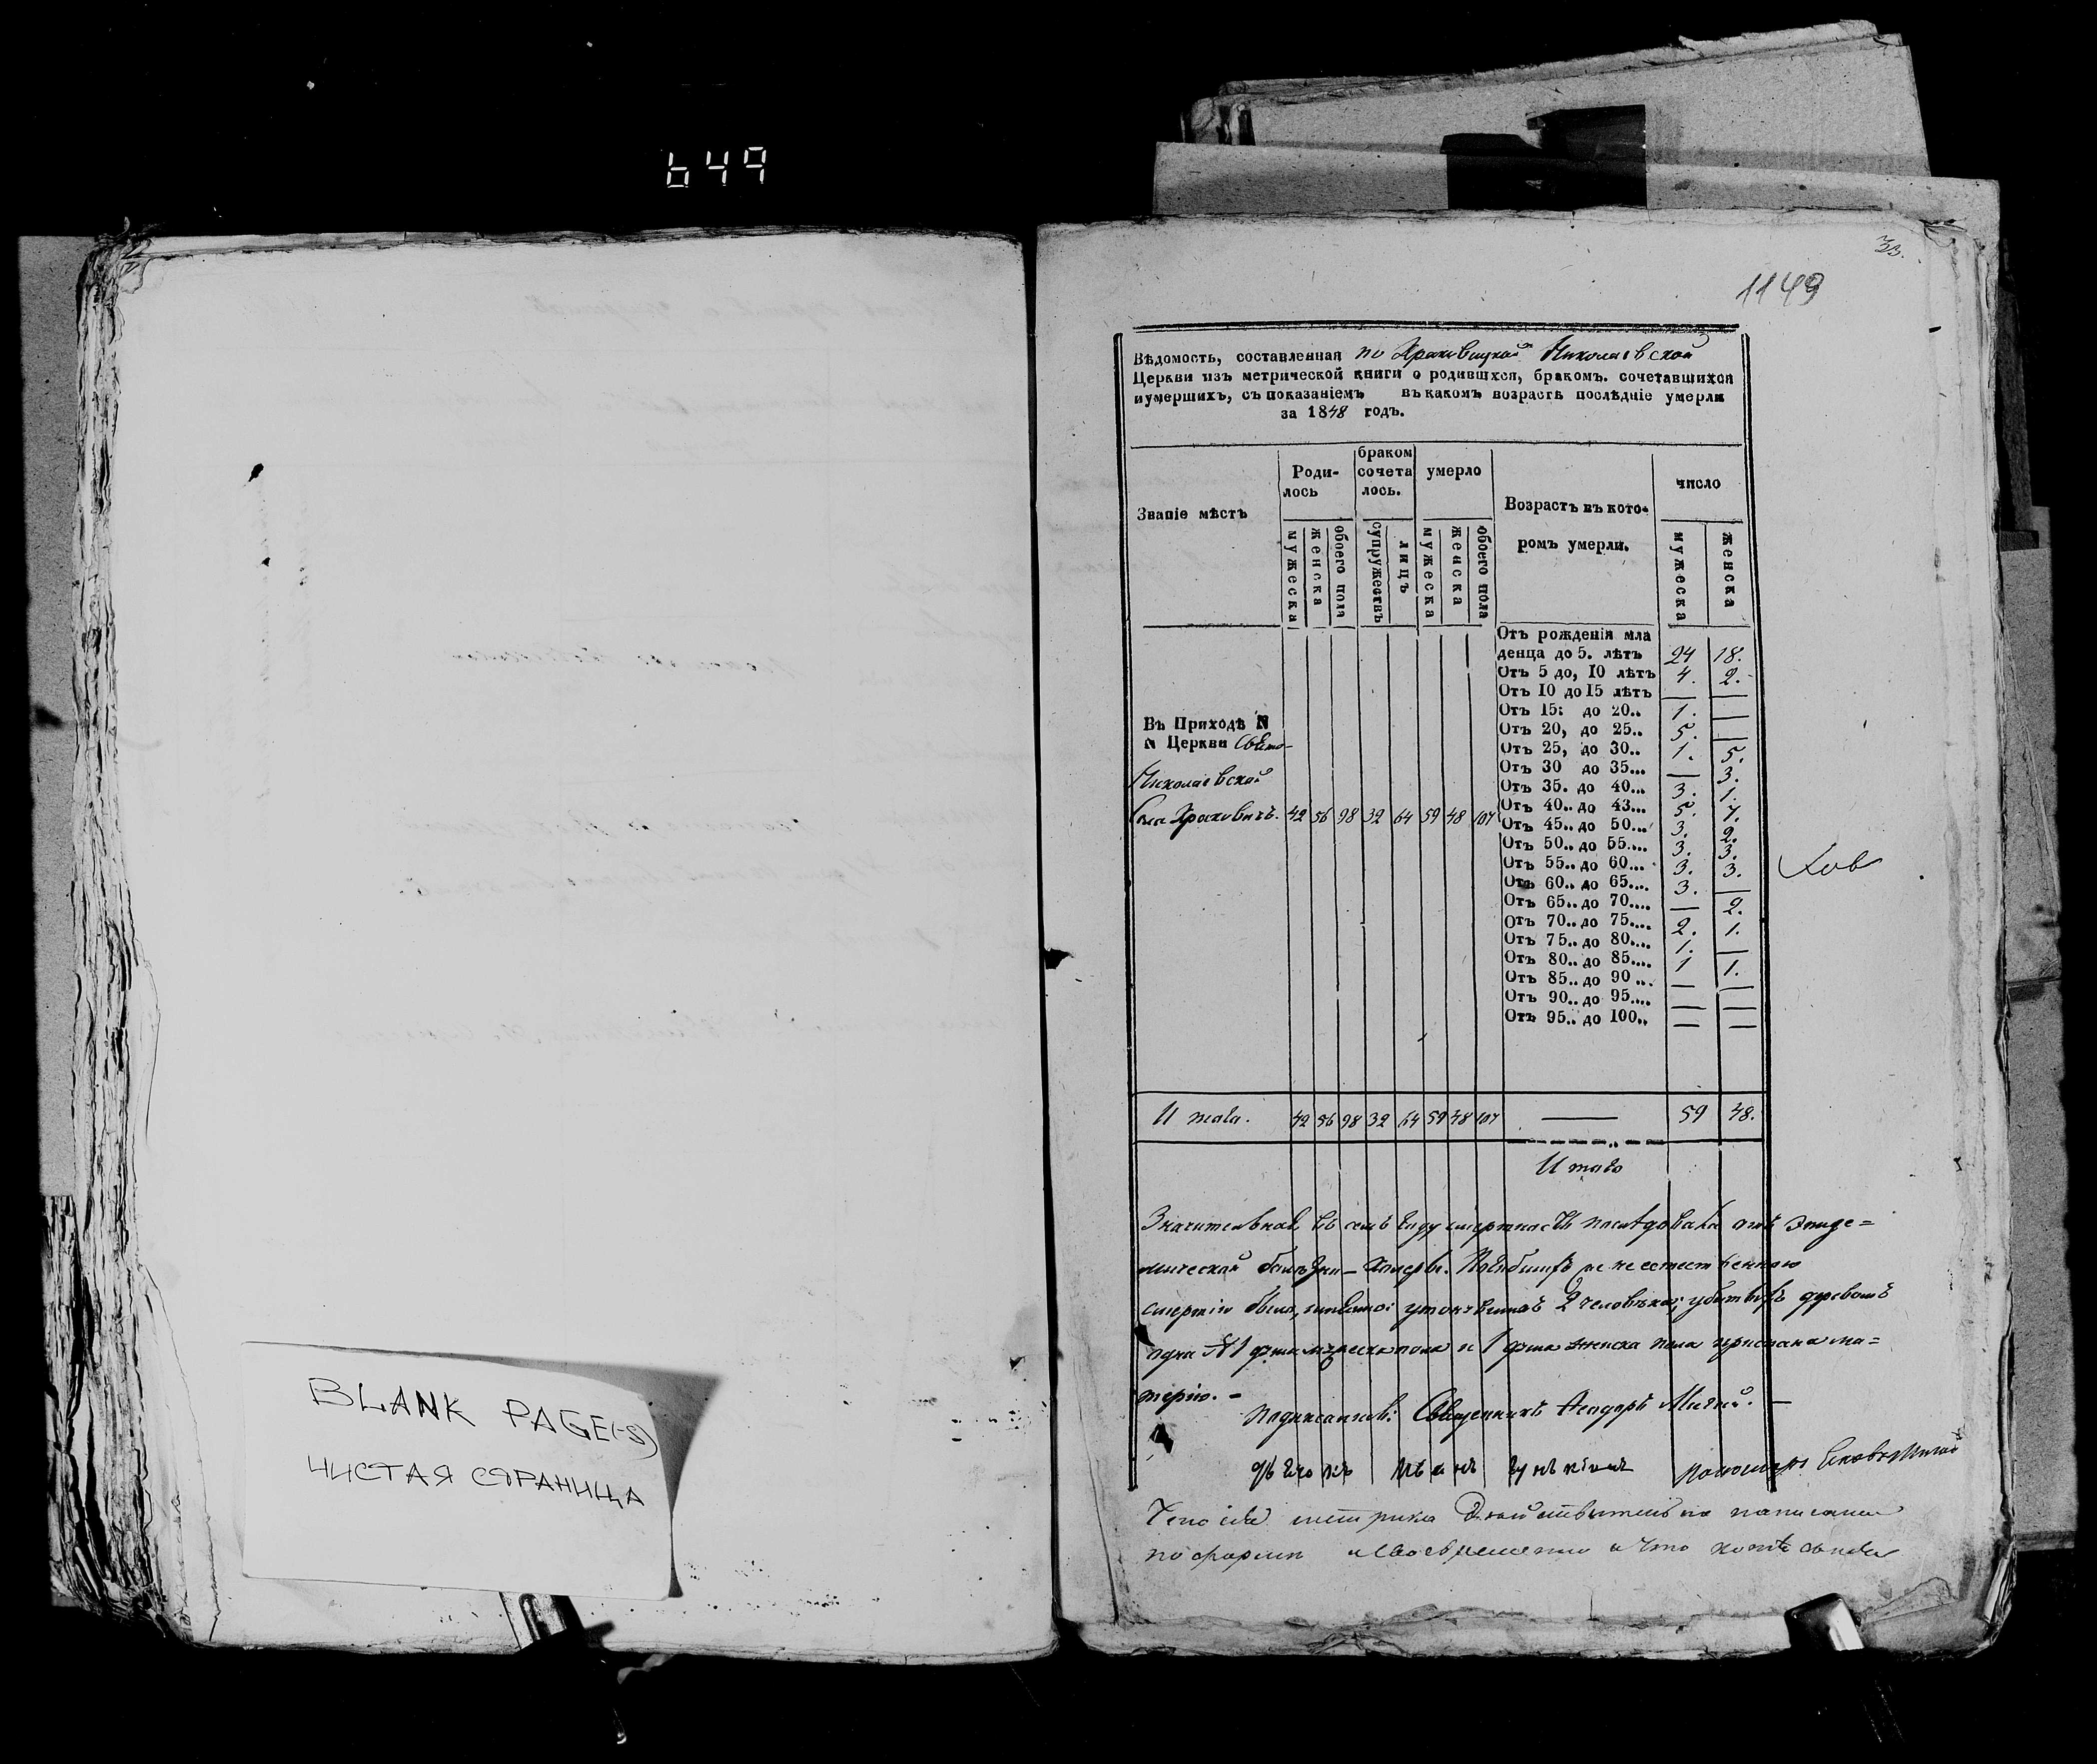 649
33.
1149
Вѣдомость, составленная по Храковицкой Николаевской
Церкви изъ метрической книги о родившхся, бракомъ. сочетавшихся
и умершихъ, съ показаніемъ въ какомъ возрастѣ послѣдніе умерли
за 1848 годъ.
Званіе мѣстъ
Роди-
лось
браком
сочета
лось.
умерло
Возрастъ въ кото-
ромъ умерли.
число
мужеска
женска
обоего пола
супружествъ
лицъ
мужеска
женска
обоего пола
мужеска
женска
Отъ рожденія мла
денца до 5. лѣтъ 24 18.
Отъ 5 до, 10 лѣтъ 4. 2.
Отъ 10 до 15 лѣтъ — —
Отъ 15: до 20.. 1. —
Отъ 20, до 25.. 5. —
Отъ 25, до 30.. 1. 5.
Отъ 30 до 35... — 3.
Отъ 35. до 40... 3. 1.
Отъ 40.. до 43... 5. 7.
Отъ 45.. до 50... 3. 2.
Отъ 50.. до 55.... 3. 3.
Отъ 55.. до 60.... 3. 3.
Отъ 60.. до 65.... 3. —
Отъ 65.. до 70.... — 2.
Отъ 70.. до 75.... 2. 1.
Отъ 75.. до 80.... 1. —
Отъ 80.. до 85.... 1 1.
Отъ 85.. до 90.... — —
Отъ 90.. до 95.... — —
Отъ 95.. до 100.. — —
Въ Приходѣ N
N Церкви Свято-
Николаевской
Села Храковичъ. 42 56 98 32 64 59 48 107
Итого. 42 56 98 32 64 59 48 107 — 59 48.
Итого
Значительная въ семъ году смертность послѣдовала отъ эпиде=
мической болѣзни – Холеры. Погибшихъ не естественною
смертію было, утонувшихъ 2 человѣка; убитыхъ деревомъ
одна 1 душа мужеска пола и 1 душа женска пола приспана ма=
терію. –
Подписались: Священникъ Ѳеодоръ Мигай. —
дьячокъ пономарь
Что сія метрика действительно написана
по форме и своевременно и что копія
BLANK PAGE(-S)
ЧИСТАЯ СТРАНИЦА